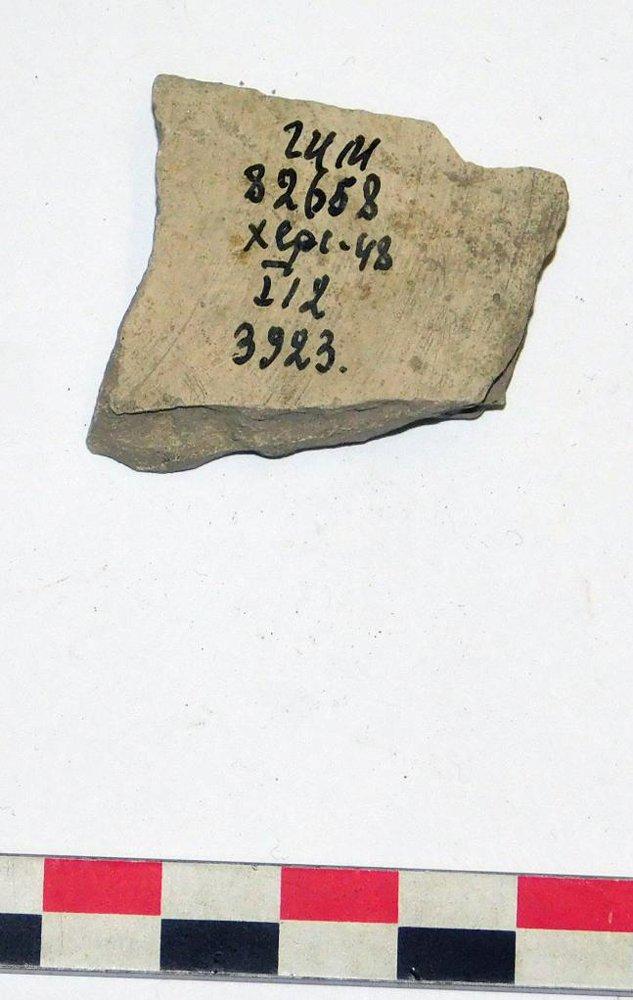 ГИМ
82658
Херс-48
I12
3923.